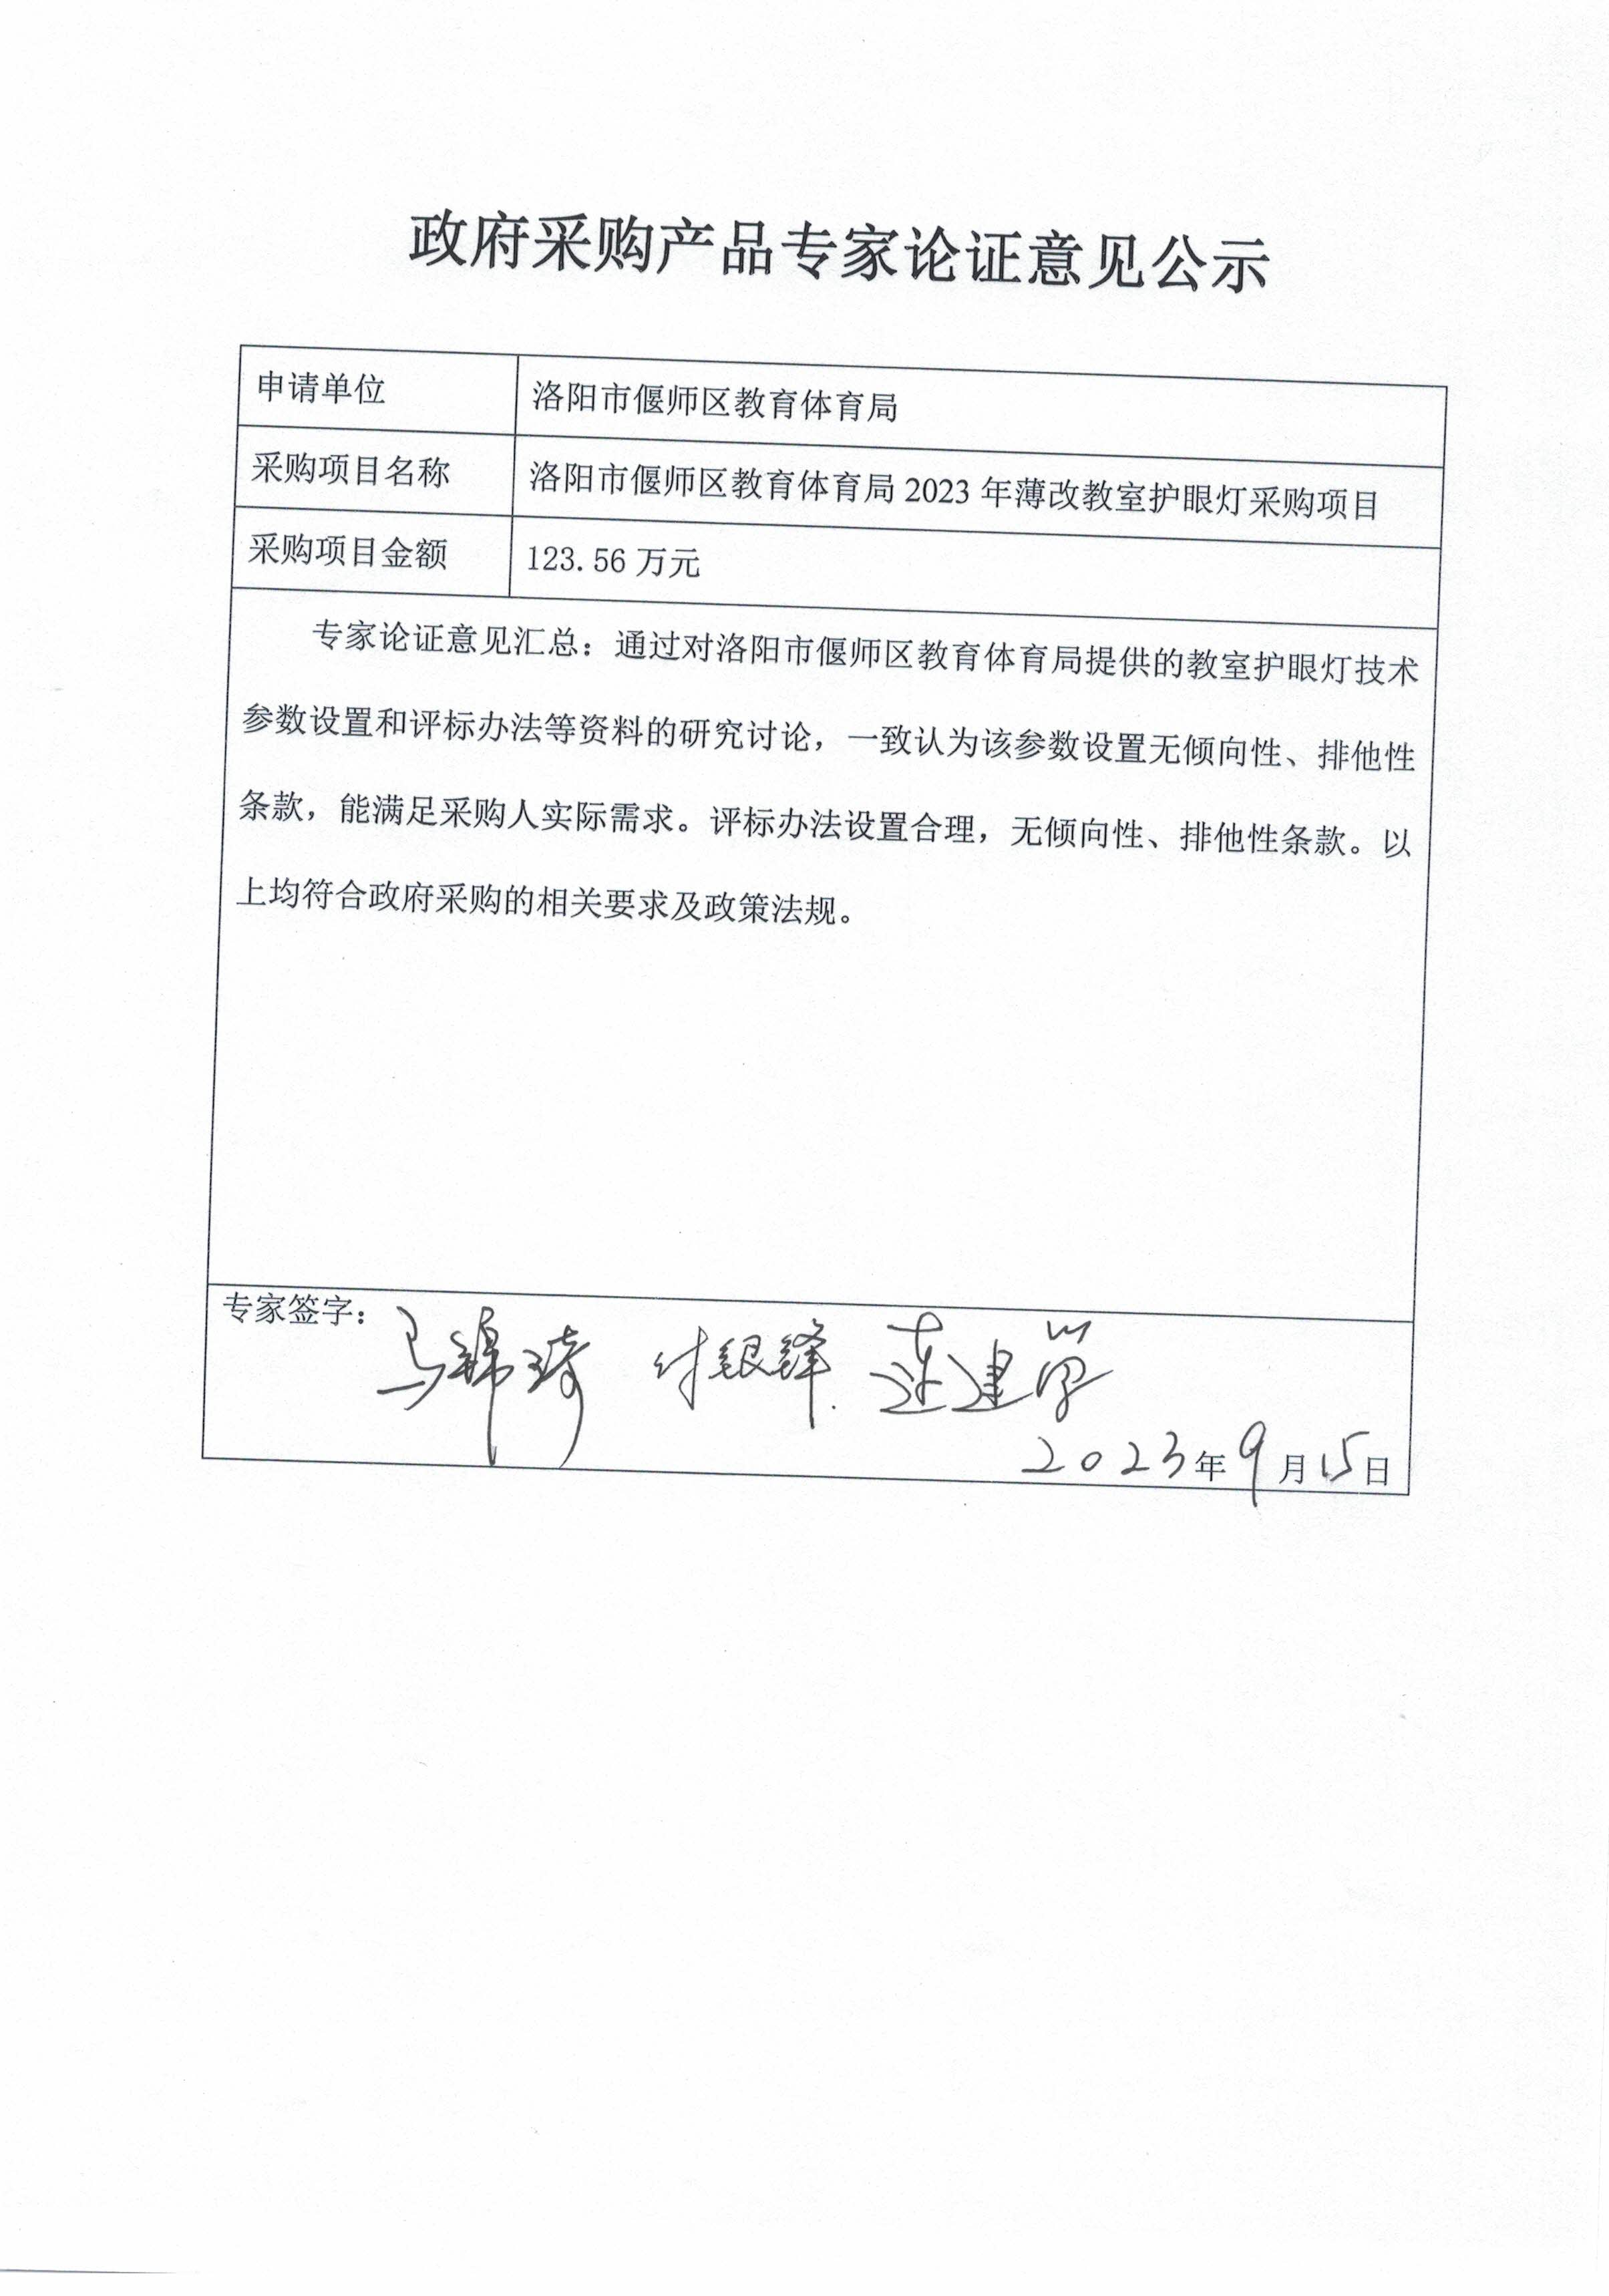 政府采购产品专家论证意见公示
申请单位 洛阳市偃师区教育体育局
采购项目名称 洛阳市偃师区教育体育局 2023 年薄改教室护眼灯采购项目
采购项目金额 123.56 万元
专家论证意见汇总：通过对洛阳市偃师区教育体育局提供的教室护眼灯技术
参数设置和评标办法等资料的研究讨论，一致认为该参数设置无倾向性、排他性
条款，能满足采购人实际需求。评标办法设置合理，无倾向性、排他性条款。以
上均符合政府采购的相关要求及政策法规。
专家签字：
马锦琦 付银锋 连建学
2023年9月15日